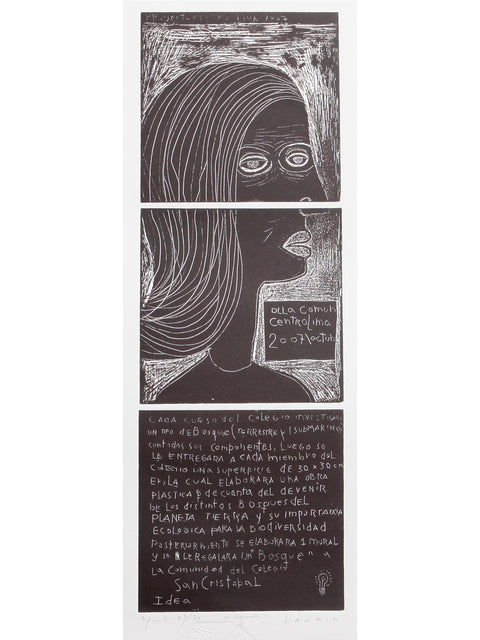 OLLA COMUN
CENTROLIMA
2007\octub
CADA CURSO del COLEGIO INVESTIGARA
UN TIPO de BOSQUE (TERRESTRE y SUBMARINO)
con todos sus componentes, LUEGO SE
LE ENTREGARA A CADA miembro del
COLEGIO UNA SUPERFICIE de 30 x 30 cm
EN LA CUAL ELABORARA una OBRA
PLASTICA q de cuenta del DEVENIR
DE LOS distintos BOSQUES DEL
PLANETA TIERRA y su importancia
Ecologica PARA LA BIODIVERSIDAD
POSTERIORMENTE SE ELABORARA 1 MURAL
y se LE REGALARA UN "Bosque" a
LA Comunidad del Colegio
San Cristobal
Idea